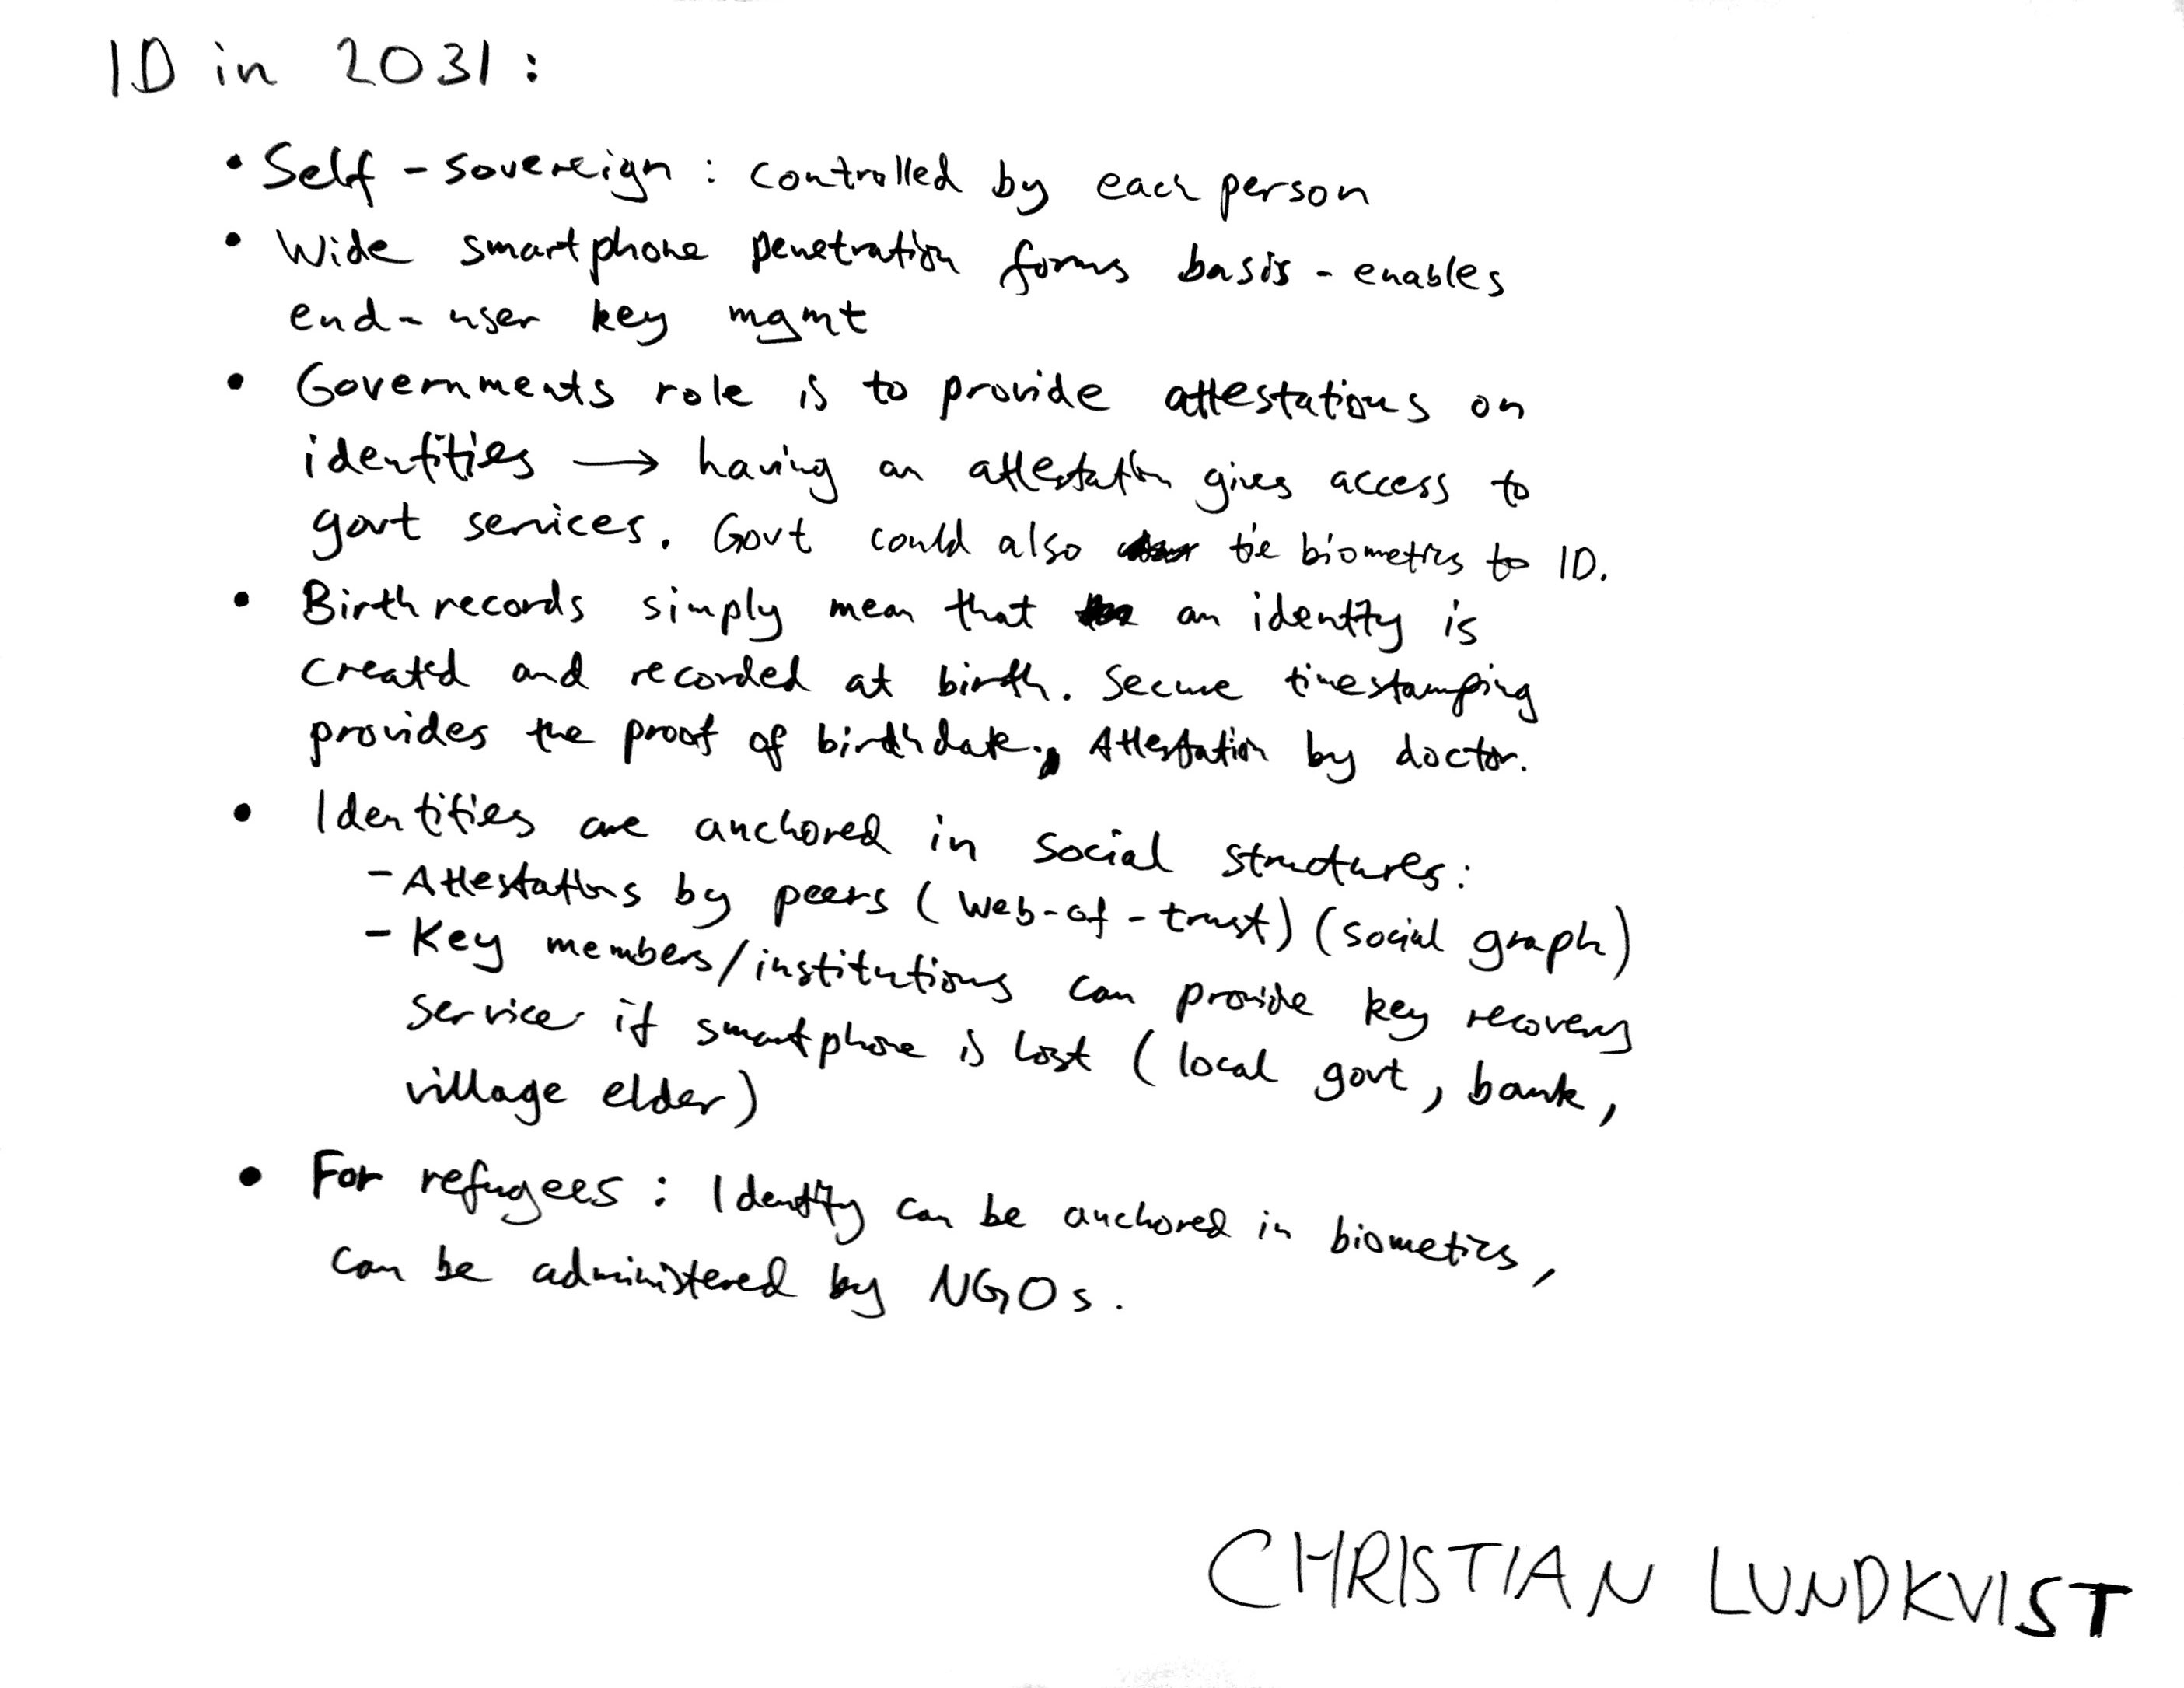 ID in 2031:
• Self-sovereign: controlled by each person
• Wide smartphone penetration forms basis - enables
end-user key mgmt
• Governments role is to provide attestations on
identities → having an attestation gives access to
govt services. Govt could also tie biometrics to ID.
• Birth records simply mean that an identity is
created and recorded at birth. Secure timestamping
provides the proof of birthdate, Attestation by doctor.
• Identities are anchored in social structures:
- Attestations by peers (web-of-trust) (social graph)
- Key members/institutions can provide key recovery
service if smartphone is lost (local govt, bank,
village elder)
• For refugees: Identity can be anchored in biometics,
can be administered by NGOs.
CHRISTIAN LUNDKVIST